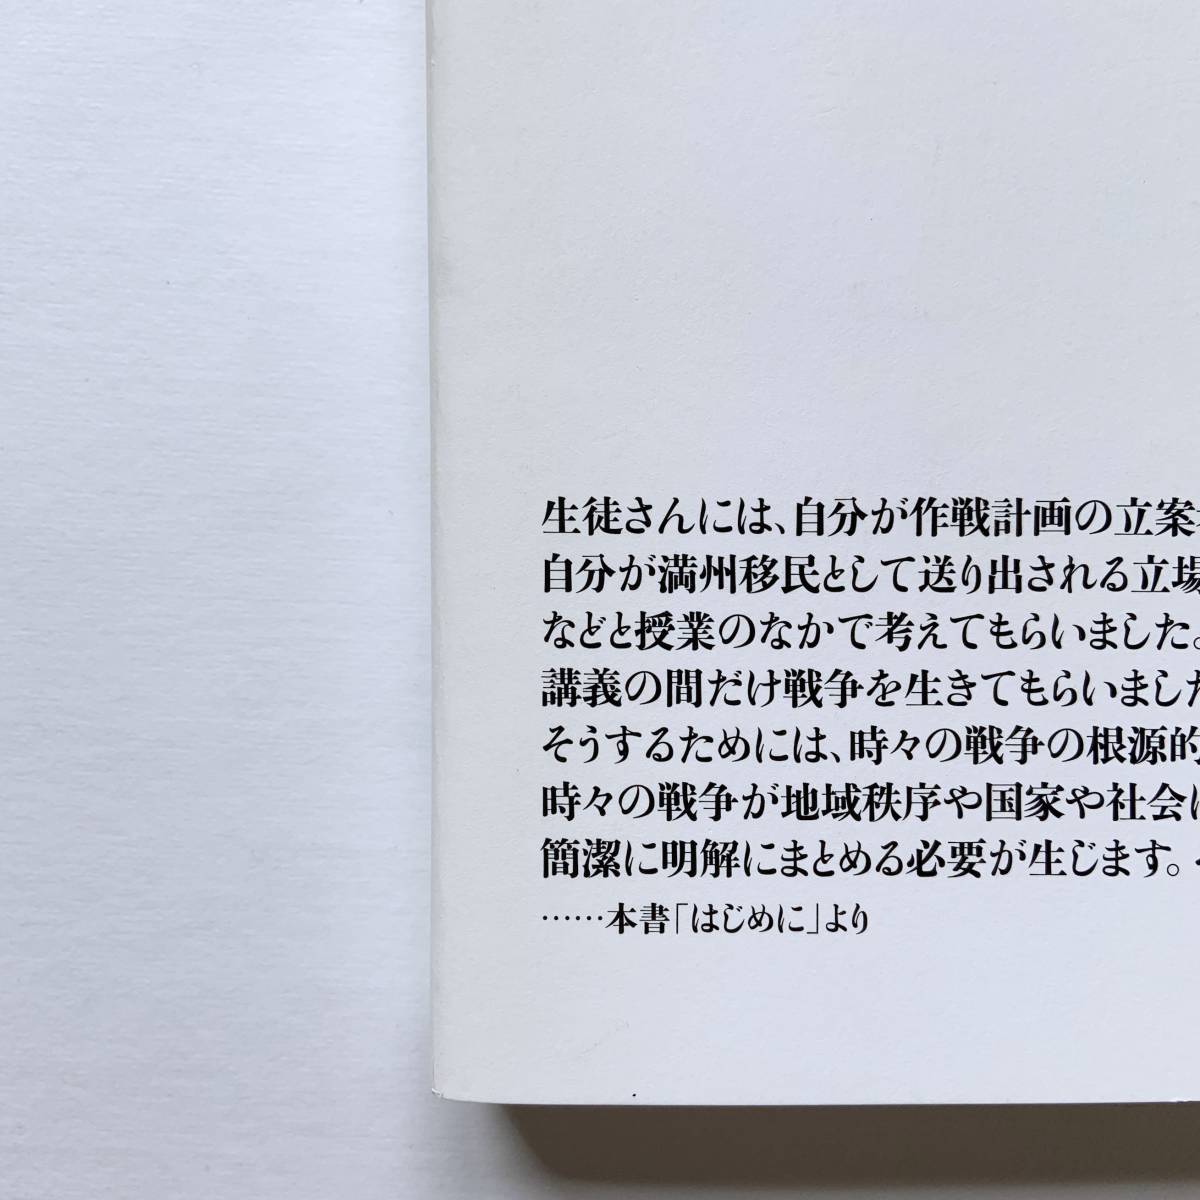 生徒さんには、自分が作戦計画の立案
自分が満州移民として送り出される立場
などと授業のなかで考えてもらいました。
講義の間だけ戦争を生きてもらいました
そうするためには、時々の戦争の根源的
時々の戦争が地域秩序や国家や社会に
簡潔に明解にまとめる必要が生じます。
……本書「はじめに」より